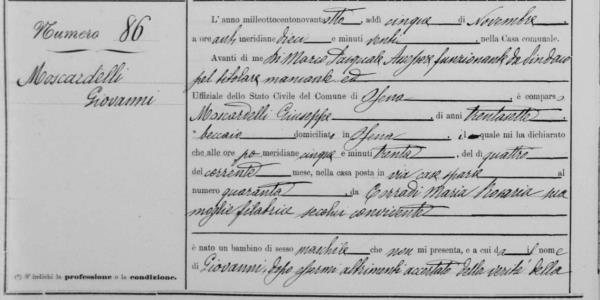 Numero 86
Moscardelli
Giovanni
(*) S'indichi la professione o la condizione.
L'anno milleottocentonovantotto, addì cinque di Novembre,
a ore anti meridiane dieci e minuti venti, nella Casa comunale.
Avanti di me Di Marco Pasquale Assessore funzionante da Sindaco
pel titolare mancante ed
Uffiziale dello Stato Civile del Comune di Ofena, è compars
Moscardelli Giuseppe, di anni trentasette
beccaio domiciliato in Ofena, il quale mi ha dichiarato
che alle ore po meridiane cinque e minuti trenta, del dì quattro
del corrente mese, nella casa posta in via case sparse al
numero quaranta, da Corradi Maria Rosaria sua
moglie filatrice seco lui convivente
è nato un bambino di sesso maschile che non mi presenta, e a cui dà il nome
di Giovanni, dopo essermi altrimenti accertato della verità della